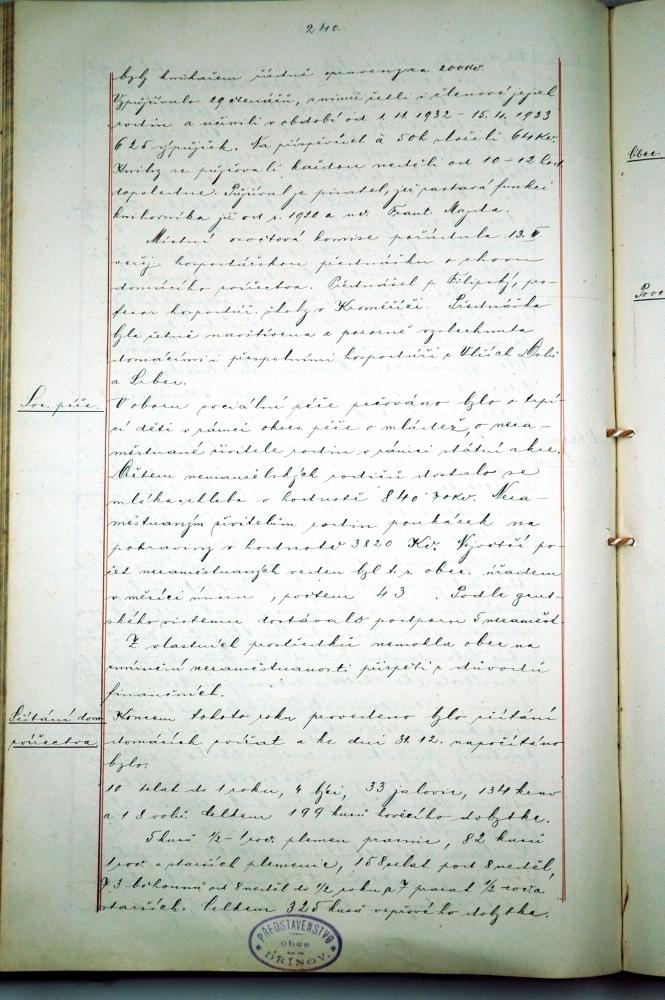 240.
byly knihařem řádně opraveny za 200 Kč.
Vypůjčovalo 29 čtenářů, s nimiž četli i členové jejich
rodin a učinili v období od 1. 11. 1932 – 15. 4. 1933
625 výpůjček. Na příspěvcích à 50 h složili 64 Kč.
Knihy se půjčovali každou neděli od 10–12 hod.
dopoledne. Půjčoval je pisatel, jež zastává funkci
knihovníka již od r. 1920 a uč. Frant. Majda.
Místní osvětová komise pořádala 13. II
veřej. hospodářskou přednášku o chovu
domácího zvířectva. Přednášel p. Filipský, pro-
fesor hospodář. školy v Kroměříži. Přednáška
byla četně navštívena a pozorně vyslechnuta
domácími i přespolními hospodáři z Vlčích Dolů
a Srbec.
Soc. péče.
V oboru sociální péče pečováno bylo o trpí-
cí děti v rámci okres. péče o mládež, o neza-
městnané živitele rodin v rámci státní akce.
Dětem nemanželských rodičů dostalo se
mléka a chleba v hodnotě 840·70 Kč. Neza-
městnaným živitelům rodin poukázek na
potraviny v hodnotě 3820 Kč. Největší po-
čet nezaměstnaných veden byl t. r. obec. úřadem
v měsíci únoru, počtem 43. Podle gent-
ského systemu dostávalo podporu 5 nezaměst.
Z vlastních prostředků nemohla obec na
zmírnění nezaměstnanosti přispěti z důvodů
finančních.
Sčítání dom.
zvířectva
Koncem tohoto roku provedeno bylo sčítání
domácích zvířat a ke dni 31. 12. napočítáno
bylo:
10 telat do 1 roku, 4 býci, 33 jalovic, 134 krav
a 18 volů. Celkem 199 kusů hovězího dobytka.
5 kusů ½–1 roč. plemen. prasnic, 82 kusů
1 roč. a starších plemenic, 158 selat pod 8 neděl,
73 běhounů od 8 neděl do ½ roku a 7 prasat ½ roč. a
starších. Celkem 325 kusů vepřového dobytka.
PŘEDSTAVENSTVO
obce
DŘÍNOV.
Obec